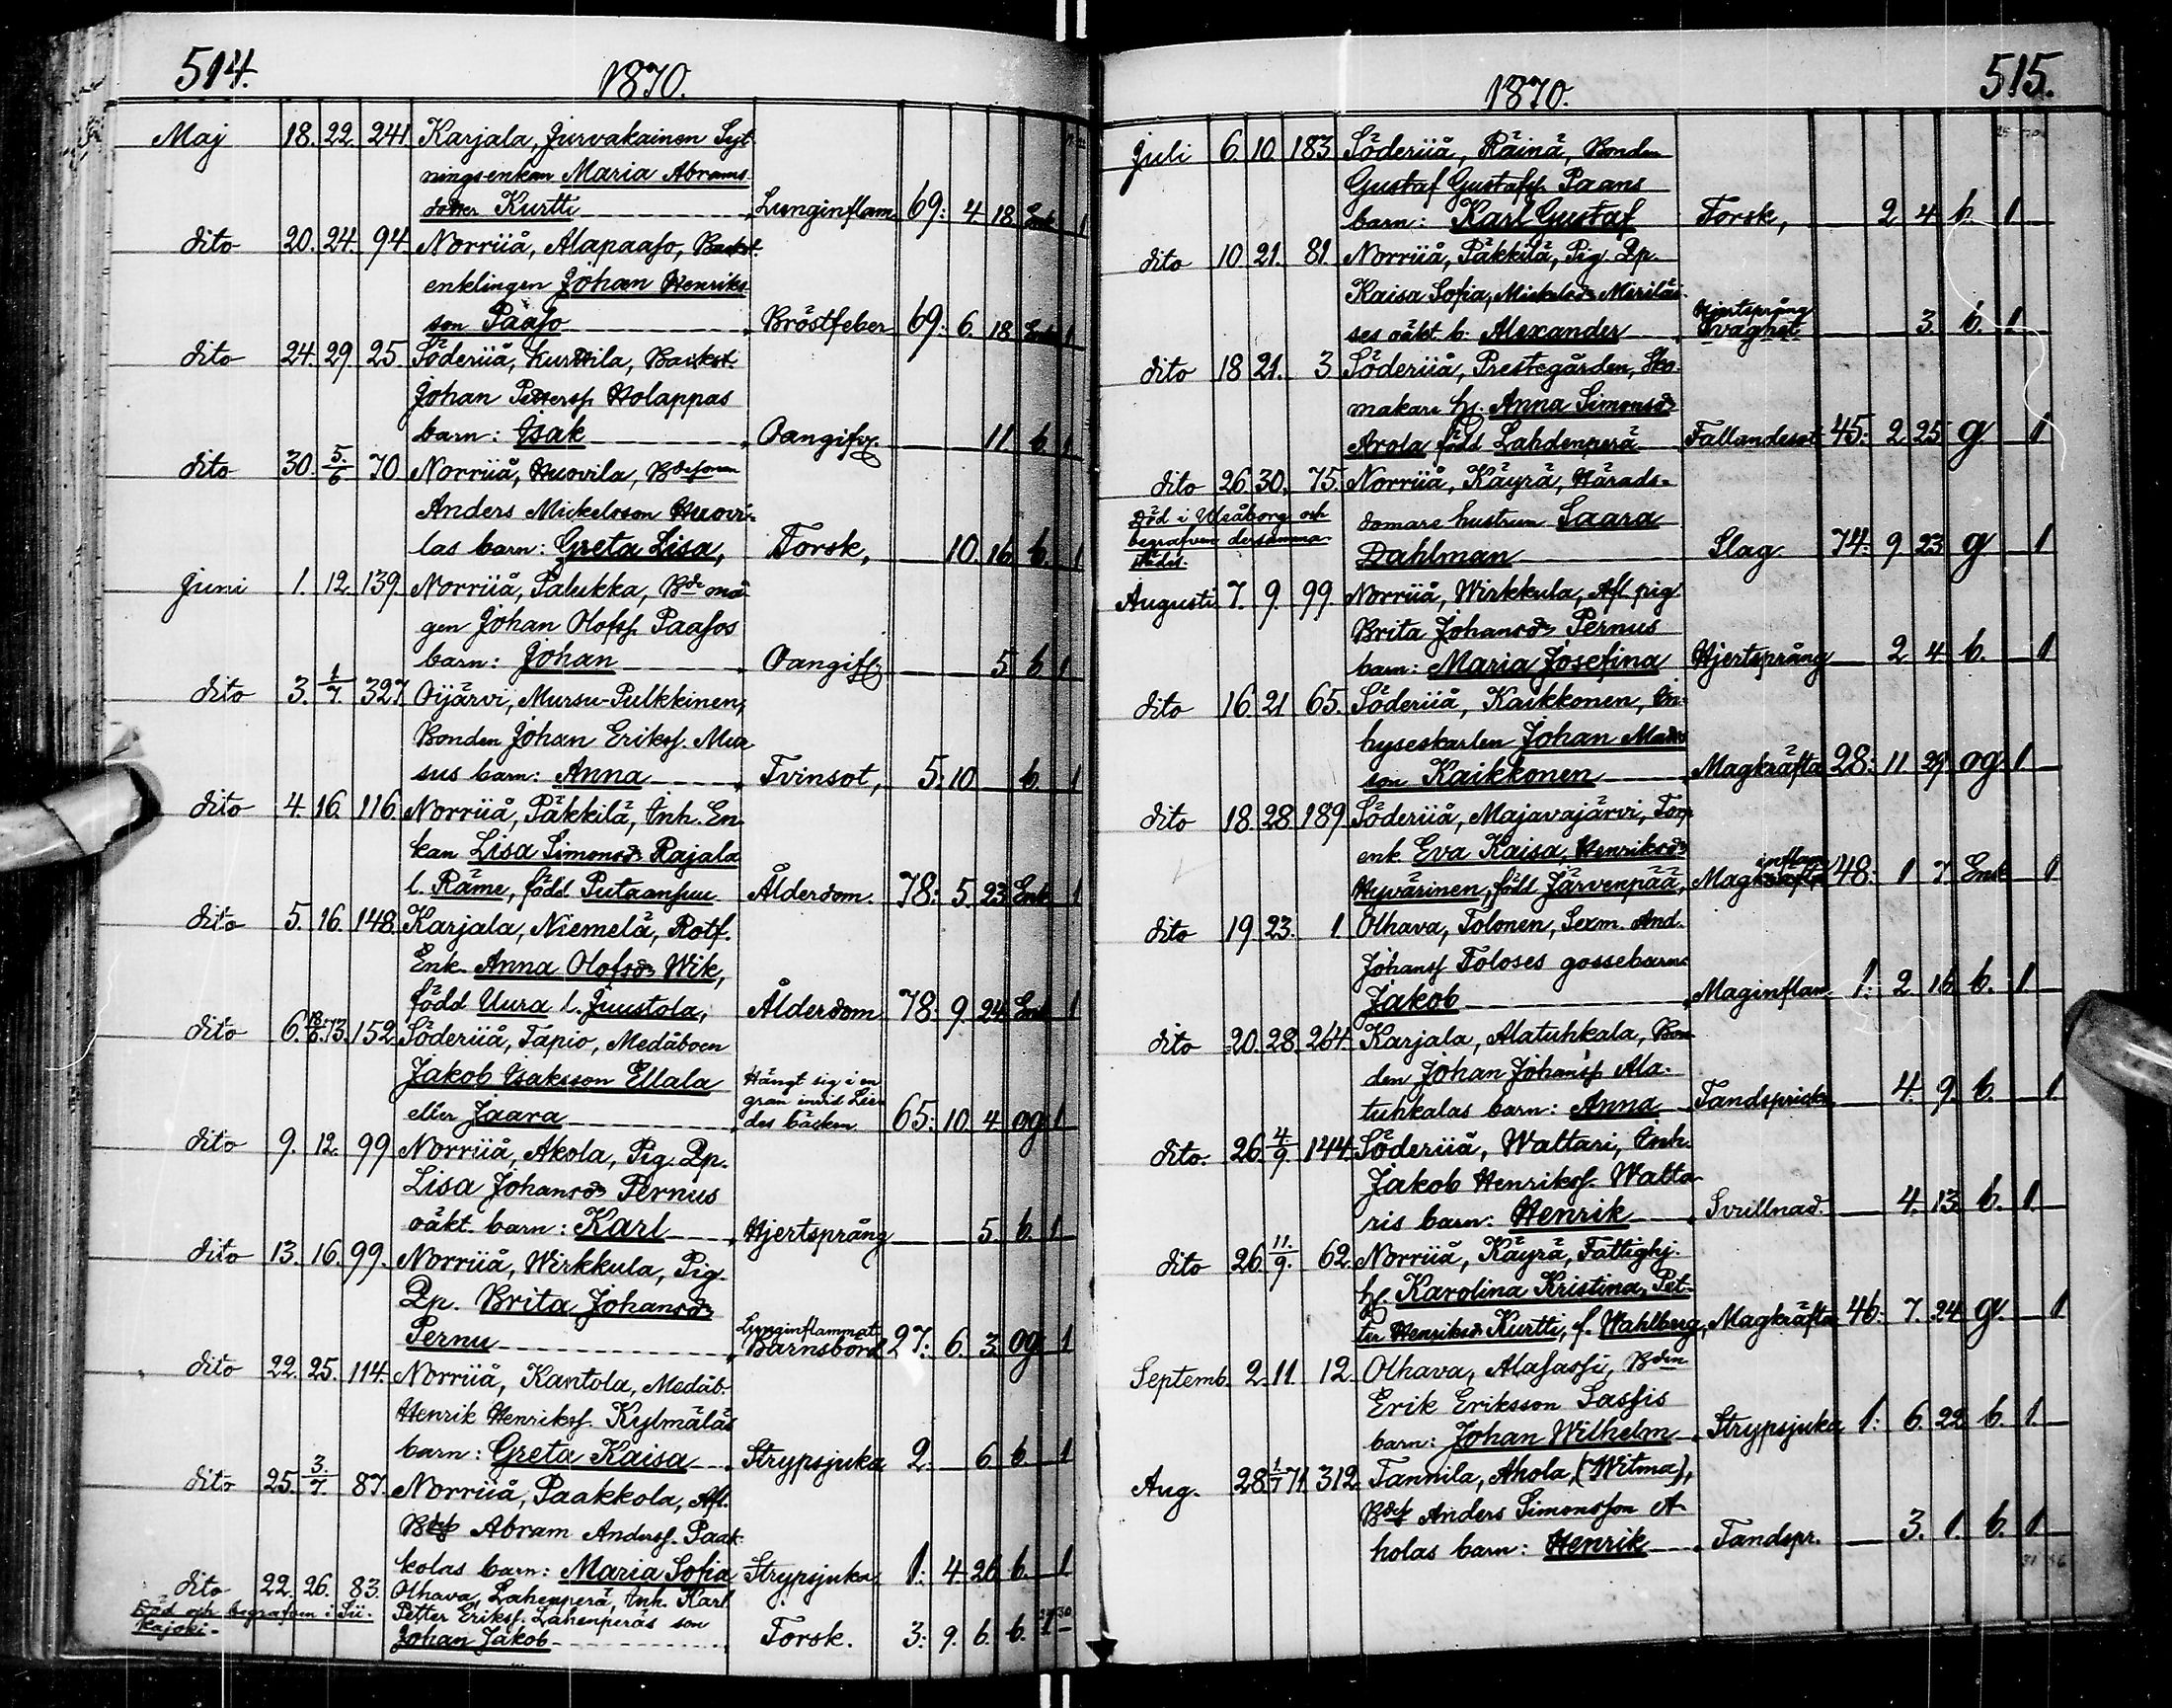 514.
1870.
Maj 18. 22. 241 Karjala, Jurvakainen Syt
ningsenkan Maria Abrams
dotter Kurtti Lunginflam 69: 4 18 Enk 1
dito 20. 24. 94. Norriiå, Alapaaso, Backst.
enklingen Johan Henriks
son Paaso Bröstfeber 69: 6. 18 Enk 1
dito 24. 29. 25. Söderiiå, Kurttila, Backst.
Johan Petterss. Holappas
barn: Isak Oangifv. 11. b. 1
dito 30. 5/6 70. Norriiå, Huovila, Bdesonen
Anders Mickelsson Huovi-
las barn: Greta Lisa, Torsk, 10. 16. b. 1
Juni 1. 12. 139. Norriiå, Palukka, Bde må-
gen Johan Olofss. Paasos
barn: Johan Oangifv 5 b 1
dito 3. 1/7. 327 Oijärvi, Mursu-Pulkkinen,
Bonden Johan Erikss. Mur
sus barn: Anna Tvinsot, 5: 10 b. 1
dito 4. 16. 116. Norriiå, Päkkilä, Inh. En-
kan Lisa Simonsdr Rajala
l. Räme, född Putaansuu Ålderdom. 78: 5. 23 Enk 1
dito 5. 16. 148. Karjala, Niemelä, Rotf.
Enk. Anna Olofsdr Wik,
född Uura l. Juustola, Ålderdom 78. 9. 24 Enk 1
dito 6. 18/6. 73. 152 Söderiiå, Tapio, Medåboen
Jakob Isaksson Ellala Hängt sig i en
gran invid Lee
eller Jaara des bäcken 65: 10. 4 og 1
dito 9. 12. 99 Norriiå, Akola, Pig. Qp.
Lisa Johansdr Pernus
oäkt. barn: Karl Hjertsprång 5. b. 1
dito 13. 16. 99. Norriiå, Wirkkula, Pig.
Qp. Brita Johansdr
Pernu Lunginflammat.
Barnsbörd 27: 6. 3 og 1
dito 22. 25. 114. Norriiå, Kantola, Medåb.
Henrik Henrikss. Kylmäläs
barn: Greta Kaisa Strypsjuka 2. 6. b. 1
dito 25. 3/7. 87. Norriiå, Paakkola, Afl.
Bdes Abram Anderss. Paak
kolas barn: Maria Sofia Strypsjuka. 1: 4 26 b. 1
dito 22. 26. 83. Olhava, Lahenperä, Inh. Karl
Död och begrafven i Sii- Petter Erikss. Lahenperäs son
kajoki. Johan Jakob Torsk. 3: 9. 6. b. 1
515.
1870.
Juli 6. 10. 183 Söderiiå, Räinä, Bonden
Gustaf Gustafss. Paans
barn: Karl Gustaf Torsk, 2 4 b. 1
dito 10. 21. 81. Norriiå, Päkkilä, Pig. Qp.
Kaisa Sofia, Mickelsdr Meriläi-
ses oäkt. b: Alexander Hjertsprång
Svaghet. 3. b. 1
dito 18 21. 3 Söderiiå, Prestegården, Sko-
makare hs. Anna Simonsdr
Arola född Lahdenperä Fallandesot 45: 2 25 g 1
dito 26. 30. 75. Norriiå, Käyrä, Härads-
Död i Uleåborg och domare hustrun Saara
begrafven dersamma-
städes. Dahlman Slag. 74. 9 23 g 1
Augusti 7. 9. 99. Norriiå, Wirkkula, Afl. pig.
Brita Johansdr Pernus
barn: Maria Josefina Hjertsprång 2 4 b. 1
dito 16. 21 65. Söderiiå, Kaikkonen, In-
hyseskarlen Johan Mads
son Kaikkonen Magkräfta 28: 11 29 og 1
dito 18. 28 189 Söderiiå, Majavajärvi, Torp
enk Eva Kaisa, Henriksdr
Hyvärinen, född Järvenpää, Maginflam 48: 1 7 Enk 1
dito 19. 23. 1. Olhava, Tolonen, Sexm. And.
Johanss Toloses gossebarn
Jakob Maginflam. 1: 2. 16 b. 1
dito 20. 28. 264. Karjala, Alatuhkala, Bon
den Johan Johanss. Ala-
tuhkalas barn: Anna Tandsprickn 4. 9. b. 1
dito. 26. 4/9. 144. Söderiiå, Waltari, Inh.
Jakob Henrikss. Walta
ris barn: Henrik Svullnad. 4. 13 b. 1
dito 26. 11./9. 62. Norriiå, Käyrä, Fattighj.
hs. Karolina Kristina, Pet-
ter Henriksdr Kurtti, f. Wahlberg, Magkräfta 46: 7. 24 g. 1
Septemb. 2. 11. 12. Olhava, Alasassi, Bden
Erik Eriksson Sassis
barn: Johan Wilhelm Strypsjuka 1: 6. 22 b. 1
Aug. 28 1/7 71. 312 Tannila, Ahola, (Witma),
Bdes Anders Simonsson A-
holas barn: Henrik Tandspr. 3. 1. b. 1